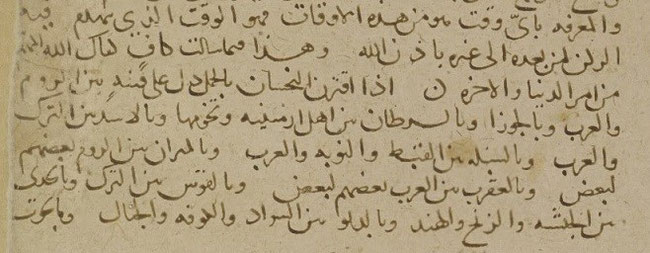 والمعرفه باىّ وقت هو من هذه الاوقات فهو الوقت الذى فيه
الى غيره باذن الله وهذا فيما سالت كاف كفاك الله المهم
من امر الدنيا والاخره ن اذا اقترن النحسان بالحمل دل على فتنه بين الروم
والعرب وبالجوزا وبالسرطان بين اهل ارمينيه وتخومها وبالاسد بين الترك
والعرب وبالسنبله بين القبط والنوبه والعرب وبالميزان بين الروم بعضهم
لبعض وبالعقرب بين العرب بعضهم لبعض وبالقوس بين الترك وبالجدى
بين الحبشه والزنج والهند وبالدلو بين السواد والكوفه والجبال وبالحوت